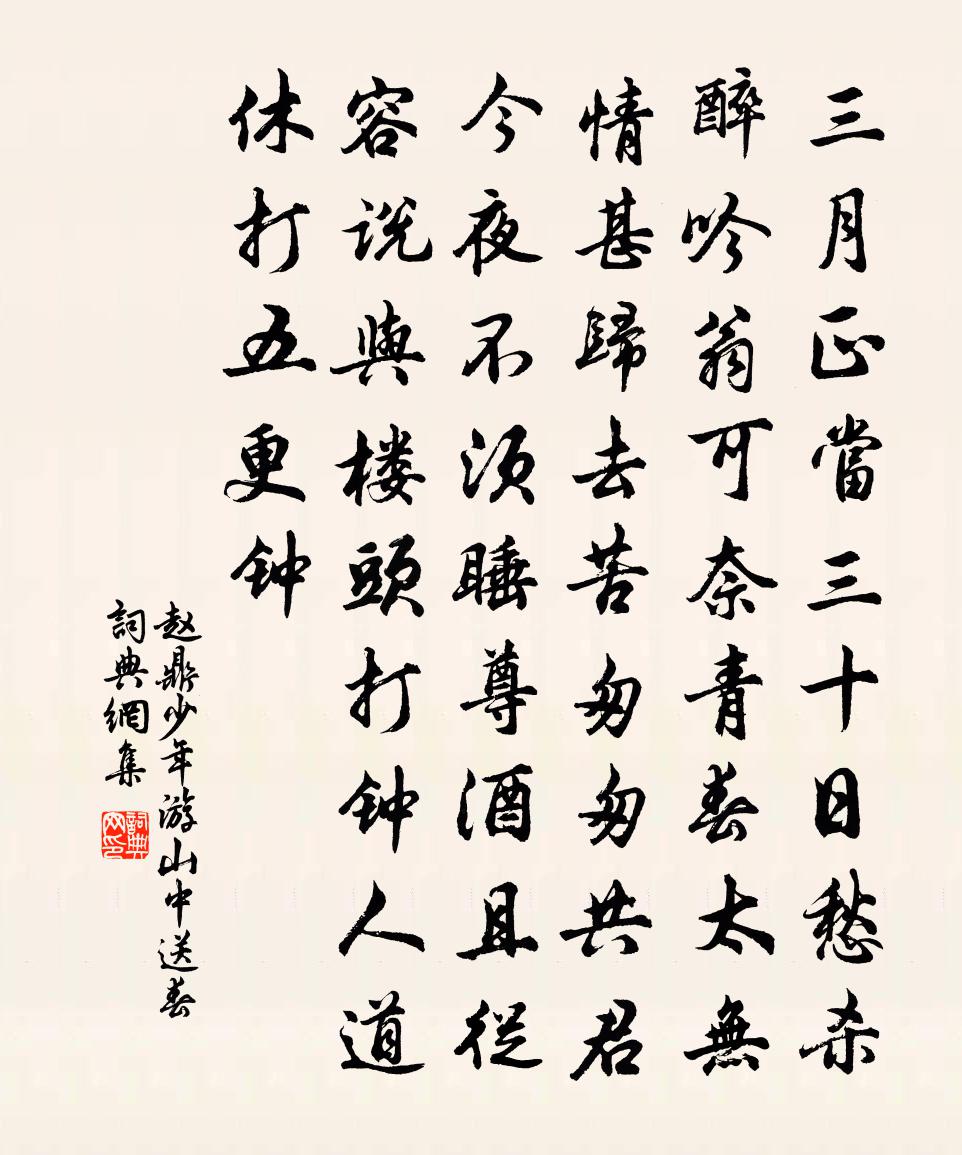 三月正當三十日愁杀
醉吟翁可奈青春太無
情甚歸去苦匆匆共君
今夜不须睡尊酒且從
容说與楼頭打钟人道
休打五更钟
赵鼎少年游山中送春
詞典網集
詞典网印